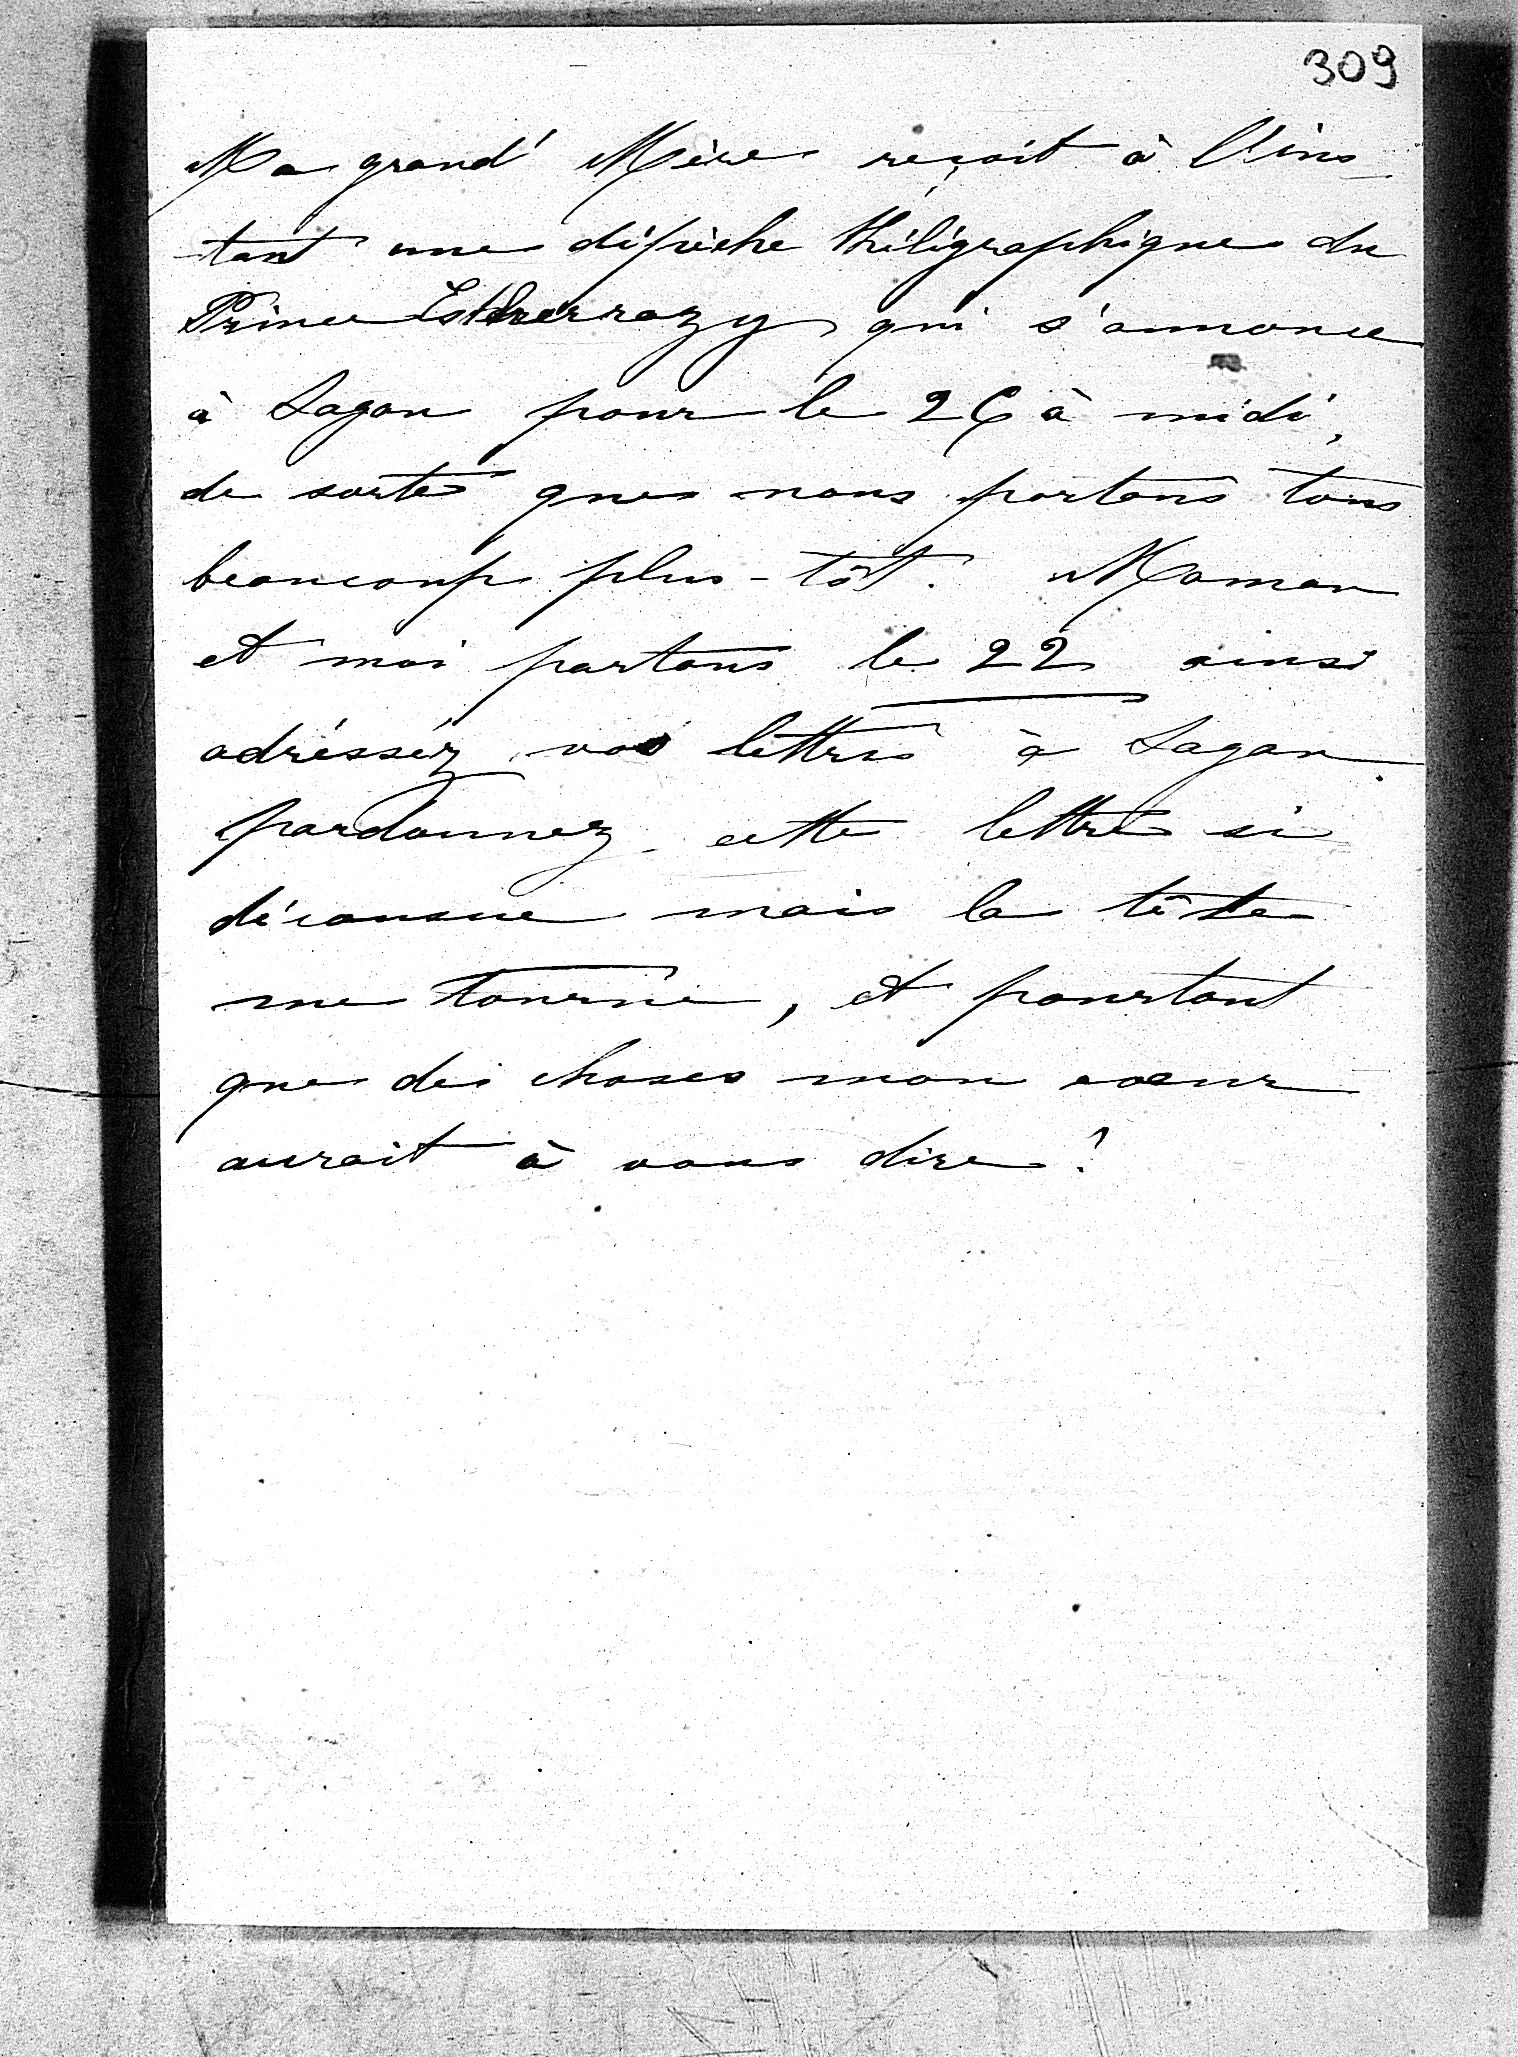 309
Ma grand' Mère reçoit à l'ins
tant une dépèche thélégraphique du
Prince Estherrazy qui s'annonce
à Sagan pour le 26 à midi,
de sorte que nous partons tous
beaucoup plus-tôt. Maman
et moi partons le 22 ainsi
adrésséz vos lettres à Sagan.
pardonnez cette lettre si
décousue mais la tête
me tourne, et pourtant
que des choses mon coeur
aurait à vous dire!